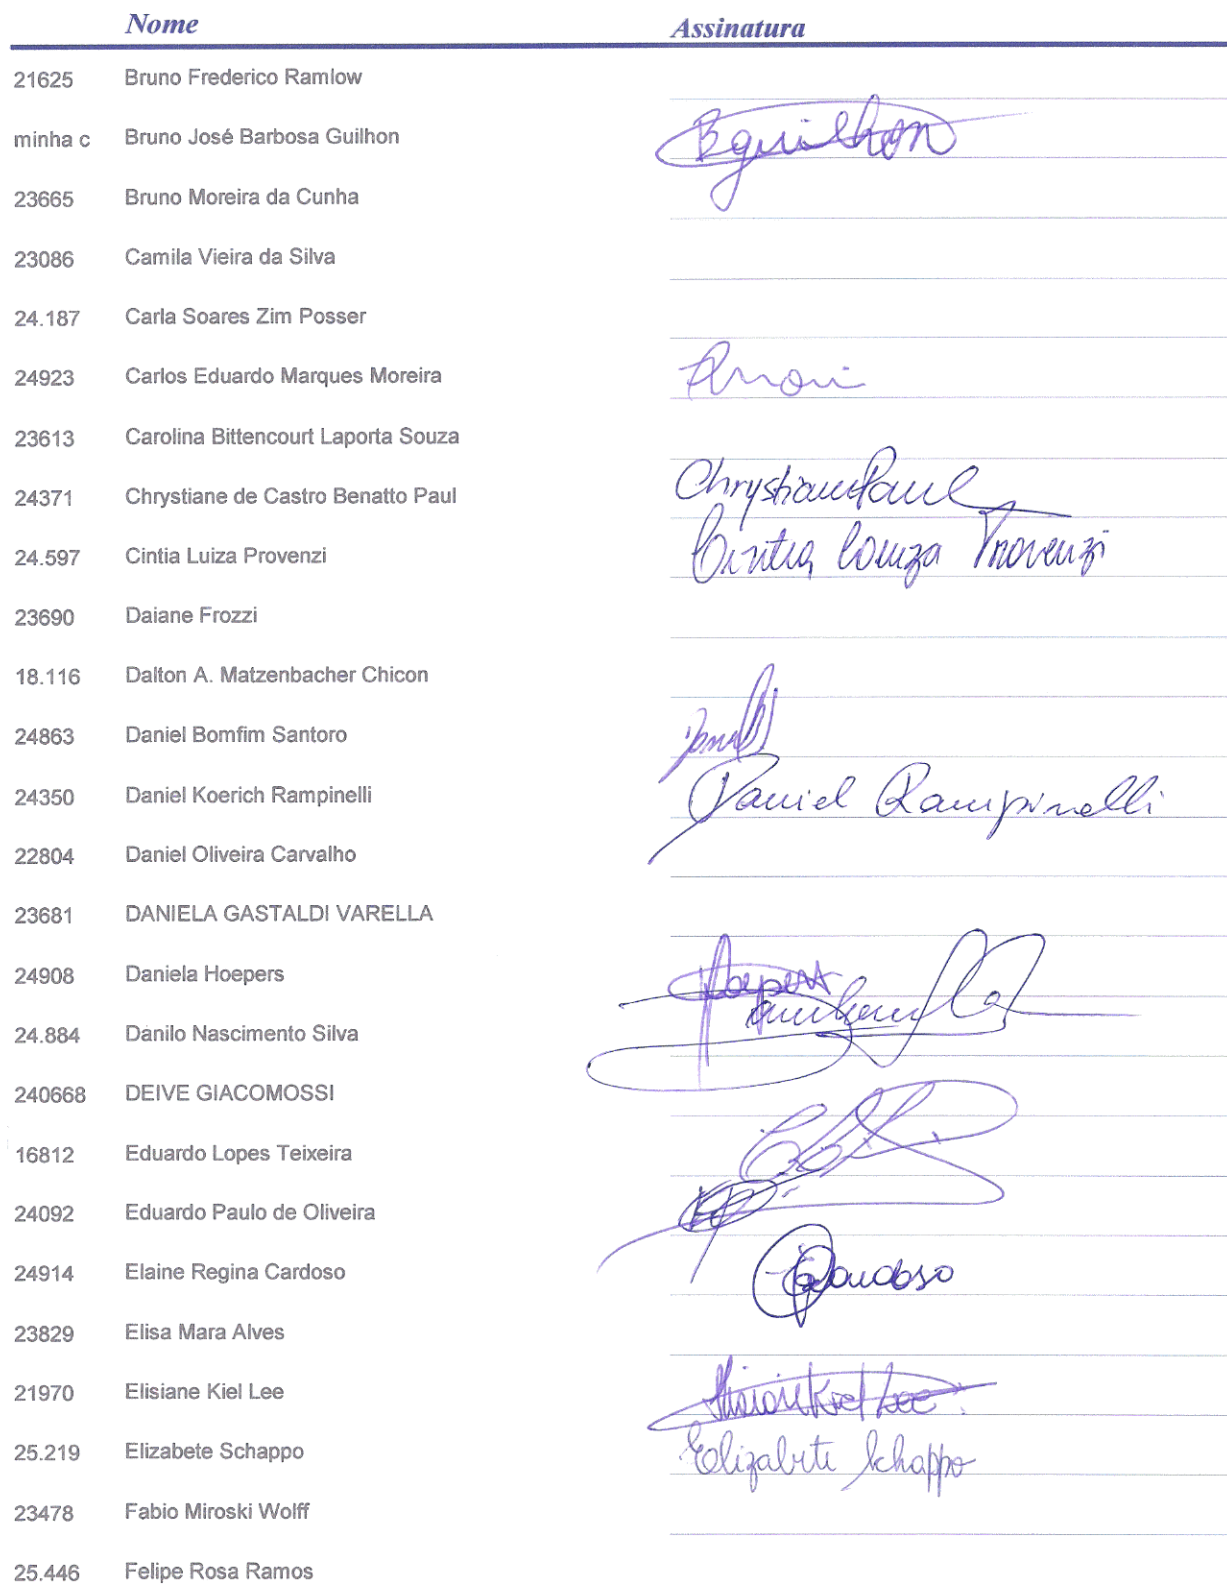 Nome Assinatura
21625 Bruno Frederico Ramlow
minha c Bruno José Barbosa Guilhon Bguilhon
23665 Bruno Moreira da Cunha
23086 Camila Vieira da Silva
24.187 Carla Soares Zim Posser
24923 Carlos Eduardo Marques Moreira
23613 Carolina Bittencourt Laporta Souza
24371 Chrystiane de Castro Benatto Paul Chrystiane Paul
24.597 Cintia Luiza Provenzi Cintia Louiza Provenzi
23690 Daiane Frozzi
18.116 Dalton A. Matzenbacher Chicon
24863 Daniel Bomfim Santoro
24350 Daniel Koerich Rampinelli Daniel Rampinelli
22804 Daniel Oliveira Carvalho
23681 DANIELA GASTALDI VARELLA
24908 Daniela Hoepers
24.884 Danilo Nascimento Silva
240668 DEIVE GIACOMOSSI
16812 Eduardo Lopes Teixeira
24092 Eduardo Paulo de Oliveira
24914 Elaine Regina Cardoso Cardoso
23829 Elisa Mara Alves
21970 Elisiane Kiel Lee Kiel Lee
25.219 Elizabete Schappo Elizabete Schappo
23478 Fabio Miroski Wolff
25.446 Felipe Rosa Ramos